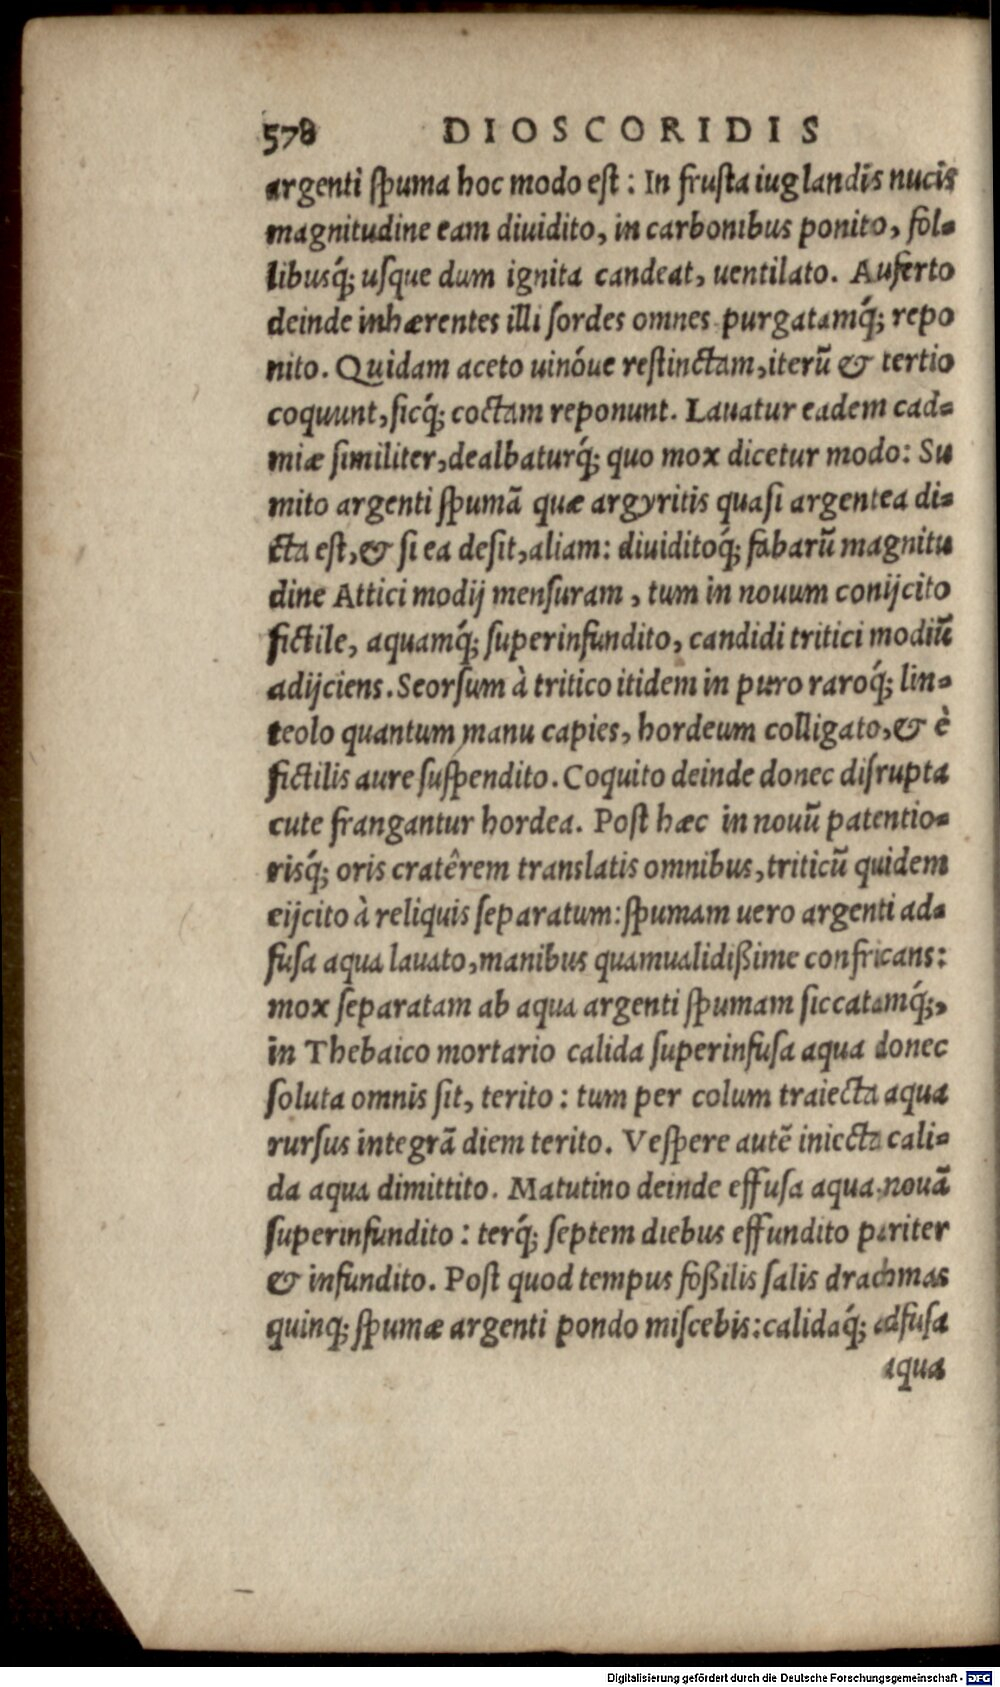 578 DIOSCORIDIS
argenti ſpuma hoc modo eſt : In fruſta iuglandis nucis
magnitudine eam diuidito, in carbonibus ponito, fol-
libusq́; uſque dum ignita candeat, uentilato. Auferto
deinde inhærentes illi ſordes omnes purgatamq́; repo
nito. Quidam aceto uinóue reſtinctam, iterū & tertio
coquunt, ſicq́; coctam reponunt. Lauatur eadem cad-
miæ ſimiliter, dealbaturq́; quo mox dicetur modo: Su
mito argenti ſpumā quæ argyritis quaſi argentea di-
cta eſt, & ſi ea deſit, aliam: diuiditoq́; fabarū magnitu
dine Attici modij menſuram, tum in nouum conijcito
fictile, aquamq́; ſuperinfundito, candidi tritici modiū
adijciens. Seorſum à tritico itidem in puro raroq́; lin-
teolo quantum manu capies, hordeum colligato, & è
fictilis aure ſuſpendito. Coquito deinde donec diſrupta
cute frangantur hordea. Poſt hæc in nouū patentio-
risq́; oris cratêrem translatis omnibus, triticū quidem
eijcito à reliquis ſeparatum: ſpumam uero argenti ad-
fuſa aqua lauato, manibus quamualidißime confricans:
mox ſeparatam ab aqua argenti ſpumam ſiccatamq́;,
in Thebaico mortario calida ſuperinfuſa aqua donec
ſoluta omnis ſit, terito : tum per colum traiecta aqua
rurſus integrā diem terito. Veſpere autē iniecta cali-
da aqua dimittito. Matutino deinde effuſa aqua, nouā
ſuperinfundito : terq́; ſeptem diebus effundito pariter
& infundito. Poſt quod tempus foßilis ſalis drachmas
quinq; ſpumæ argenti pondo miſcebis: calidaq́; adfuſa
aqua
Digitalisierung gefördert durch die Deutsche Forschungsgemeinschaft - DFG